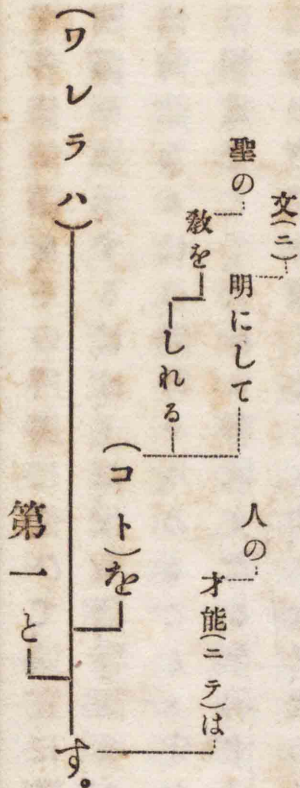 人の
才能(ニテ)は
文(ニ)
明にして
聖の
敎を
しれる
(コト)を
第一と
(ワレラハ)
す。